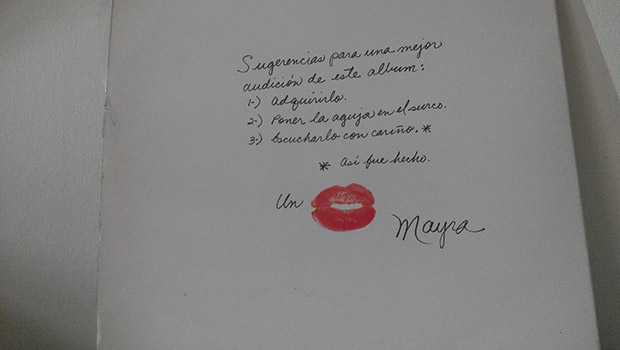 Sugerencias para una mejor
audición de este album:
1-) Adquirirlo.
2-) Poner la aguja en el surco.
3-) Escucharlo con cariño. *
* Así fue hecho.
Un
Mayra